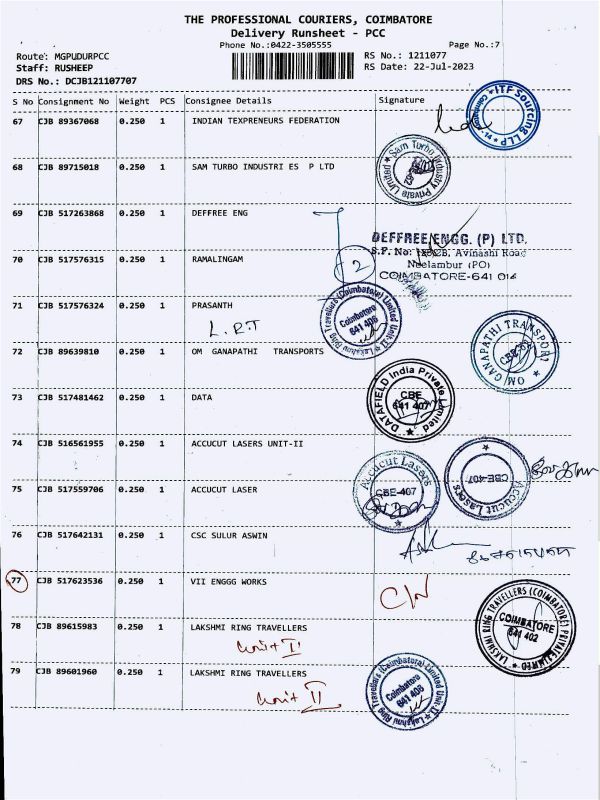 THE PROFESSIONAL COURIERS, COIMBATORE
Delivery Runsheet - PCC
Phone No.:0422-3505555 Page No.:7
Route: MGPUDURPCC RS No.: 1211077
Staff: RUSHEEP RS Date: 22-Jul-2023
DRS No.: DCJB121107707
S No Consignment No Weight PCS Consignee Details Signature
67 CJB 89367068 0.250 1 INDIAN TEXPRENEURS FEDERATION
ITF Sourcing LLP
68 CJB 89715018 0.250 1 SAM TURBO INDUSTRI ES P LTD
Sam Turbo Industry Private Limited
69 CJB 517263868 0.250 1 DEFFREE ENG
DEFFREE ENGG. (P) LTD.
Avinashi Road
Neelambur (PO)
COIMBATORE-641 014
70 CJB 517576315 0.250 1 RAMALINGAM
2
71 CJB 517576324 0.250 1 PRASANTH
L.R.T
Lakshmi Ring Travellers (Coimbatore) Limited Unit-II
Coimbatore
641 406
72 CJB 89639810 0.250 1 OM GANAPATHI TRANSPORTS
OM GANAPATHI TRANSPORT
73 CJB 517481462 0.250 1 DATA
DATAFIELD India Private Limited
CBE
641 407
74 CJB 516561955 0.250 1 ACCUCUT LASERS UNIT-II
Accucut Lasers
CBE-407
75 CJB 517559706 0.250 1 ACCUCUT LASER
Accucut Lasers
CBE-407
76 CJB 517642131 0.250 1 CSC SULUR ASWIN
77 CJB 517623536 0.250 1 VII ENGGG WORKS
78 CJB 89615983 0.250 1 LAKSHMI RING TRAVELLERS
unit I
LAKSHMI RING TRAVELLERS (COIMBATORE) PRIVATE LIMITED
COIMBATORE
641 402
79 CJB 89601960 0.250 1 LAKSHMI RING TRAVELLERS
unit II
Lakshmi Ring Travellers (Coimbatore) Limited Unit-II
Coimbatore
641 406